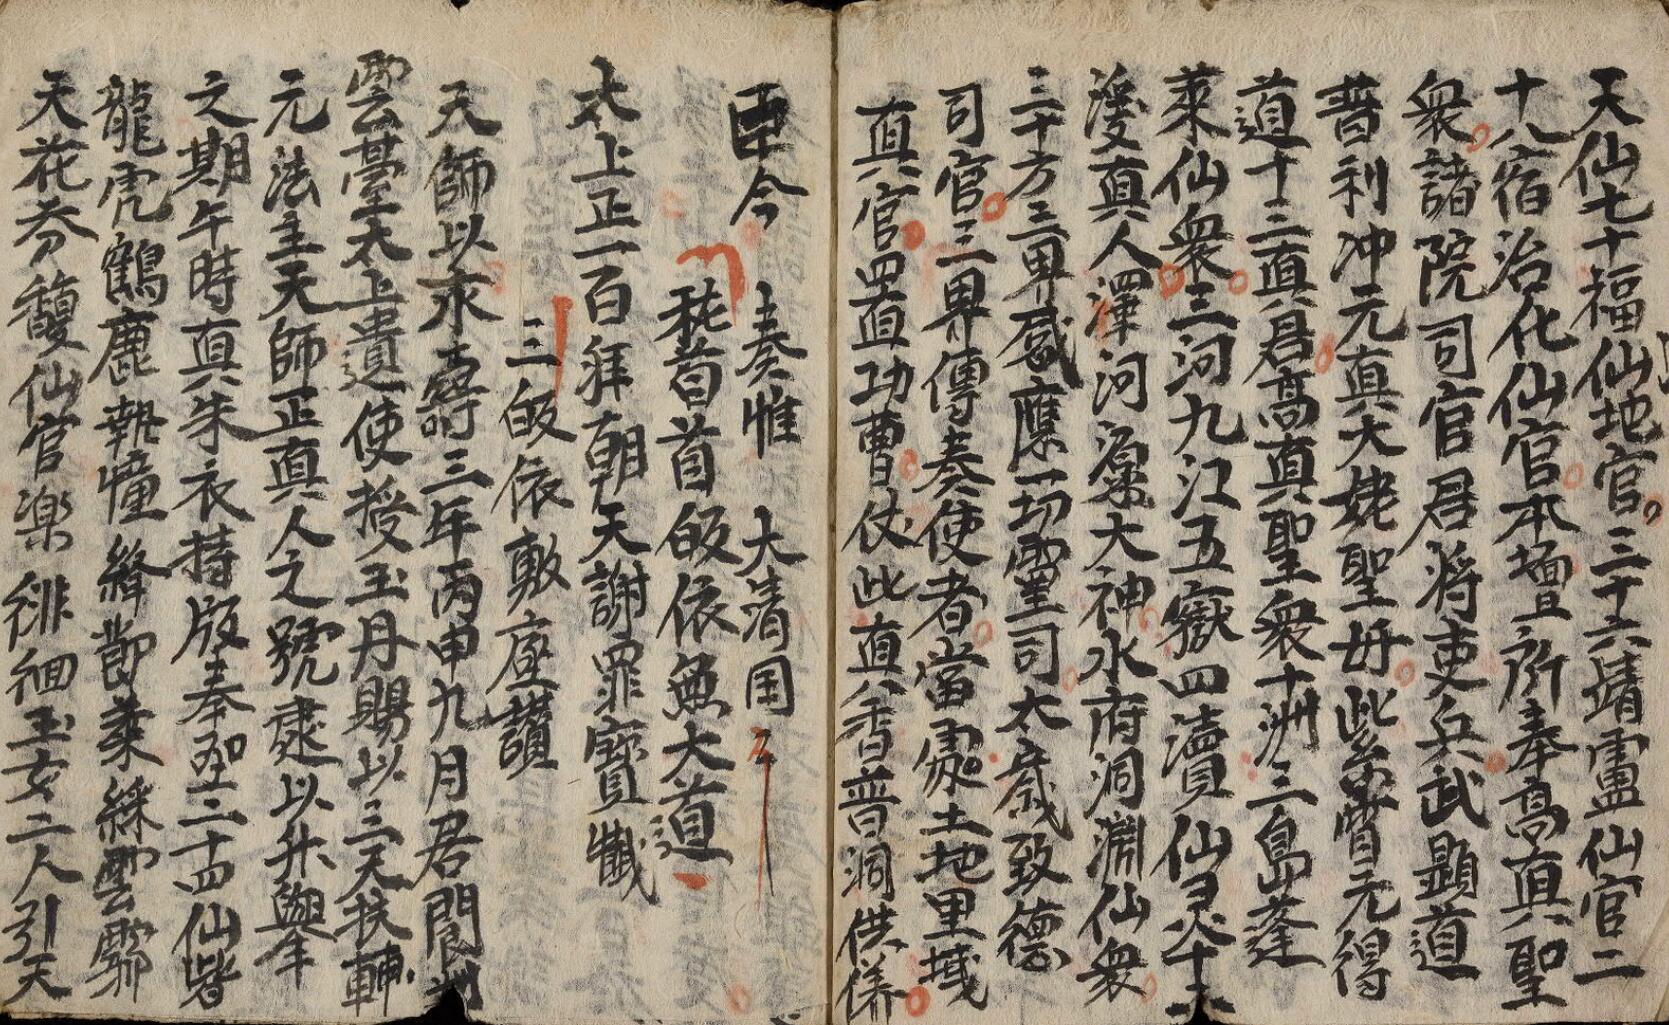 天仙七十福仙地官三十六靖盧仙官二
十八宿治化仙官本壇所奉高真聖
衆諸院司官君将吏兵武顕道
普利冲元真大姥聖母紫霄元得
道十三真君高真聖衆十洲三島蓬
萊仙衆三河九江五嶽四瀆仙灵
漫真人澤河源大神水府洞淵仙衆
三十方三界感應一切靈司太歲致德
司官三界傳奏使者當處土地里域
真官罡直功曹仗此真香普洞供養
臣今 奏惟 大清国
秪首首皈依無大道
太上正一百拜朝天謝罪寶懺
三皈依敷座讃
天師以永壽三年丙申九月君閬州
雲臺太上遺使授玉丹賜以三天扶輔
元法主天師正真人之號逮以升舉年
之期午時真朱衣持版奉聖二十四仙皆
龍虎鶴鹿執幢絳節葉綵雲霨
天花芬馥仙官楽徘徊玉女二人引天